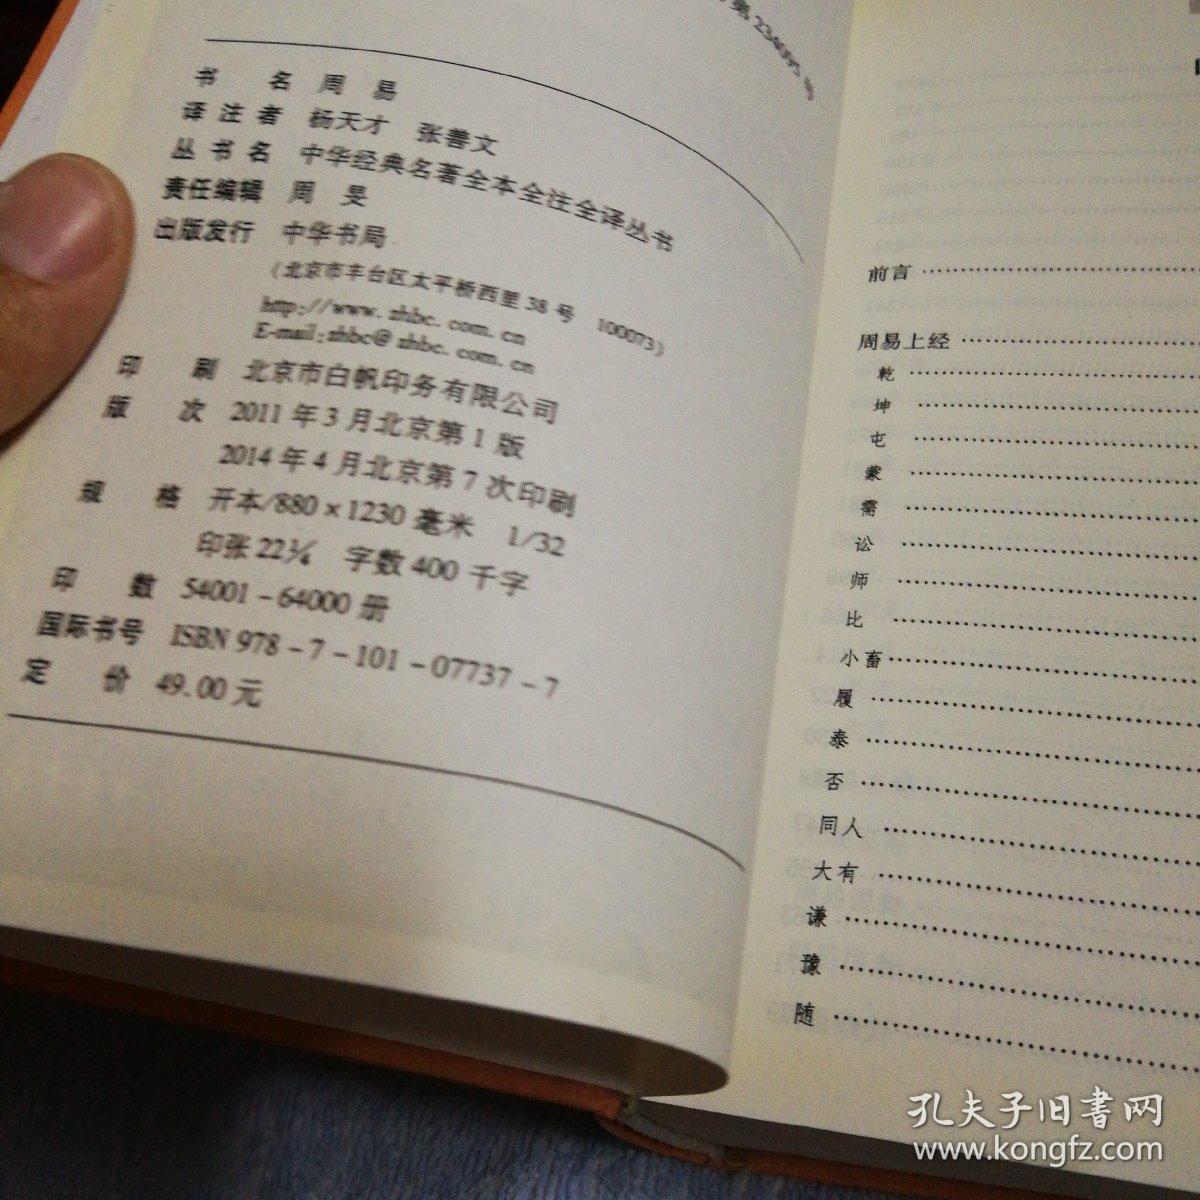 第 234095 号
书 名 周 易
译 注 者 杨天才 张善文
丛 书 名 中华经典名著全本全注全译丛书
责任编辑 周 旻
出版发行 中华书局
(北京市丰台区太平桥西里 38 号 100073)
http://www.zhbc.com.cn
E-mail:zhbc@zhbc.com.cn
印 刷 北京市白帆印务有限公司
版 次 2011 年 3 月北京第 1 版
2014 年 4 月北京第 7 次印刷
规 格 开本/880×1230 毫米 1/32
印张 22¼ 字数 400 千字
印 数 54001-64000 册
国际书号 ISBN 978-7-101-07737-7
定 价 49.00 元
前言
周易上经
乾
坤
屯
蒙
需
讼
师
比
小畜
履
泰
否
同人
大有
谦
豫
随
孔夫子旧書网
www.kongfz.com